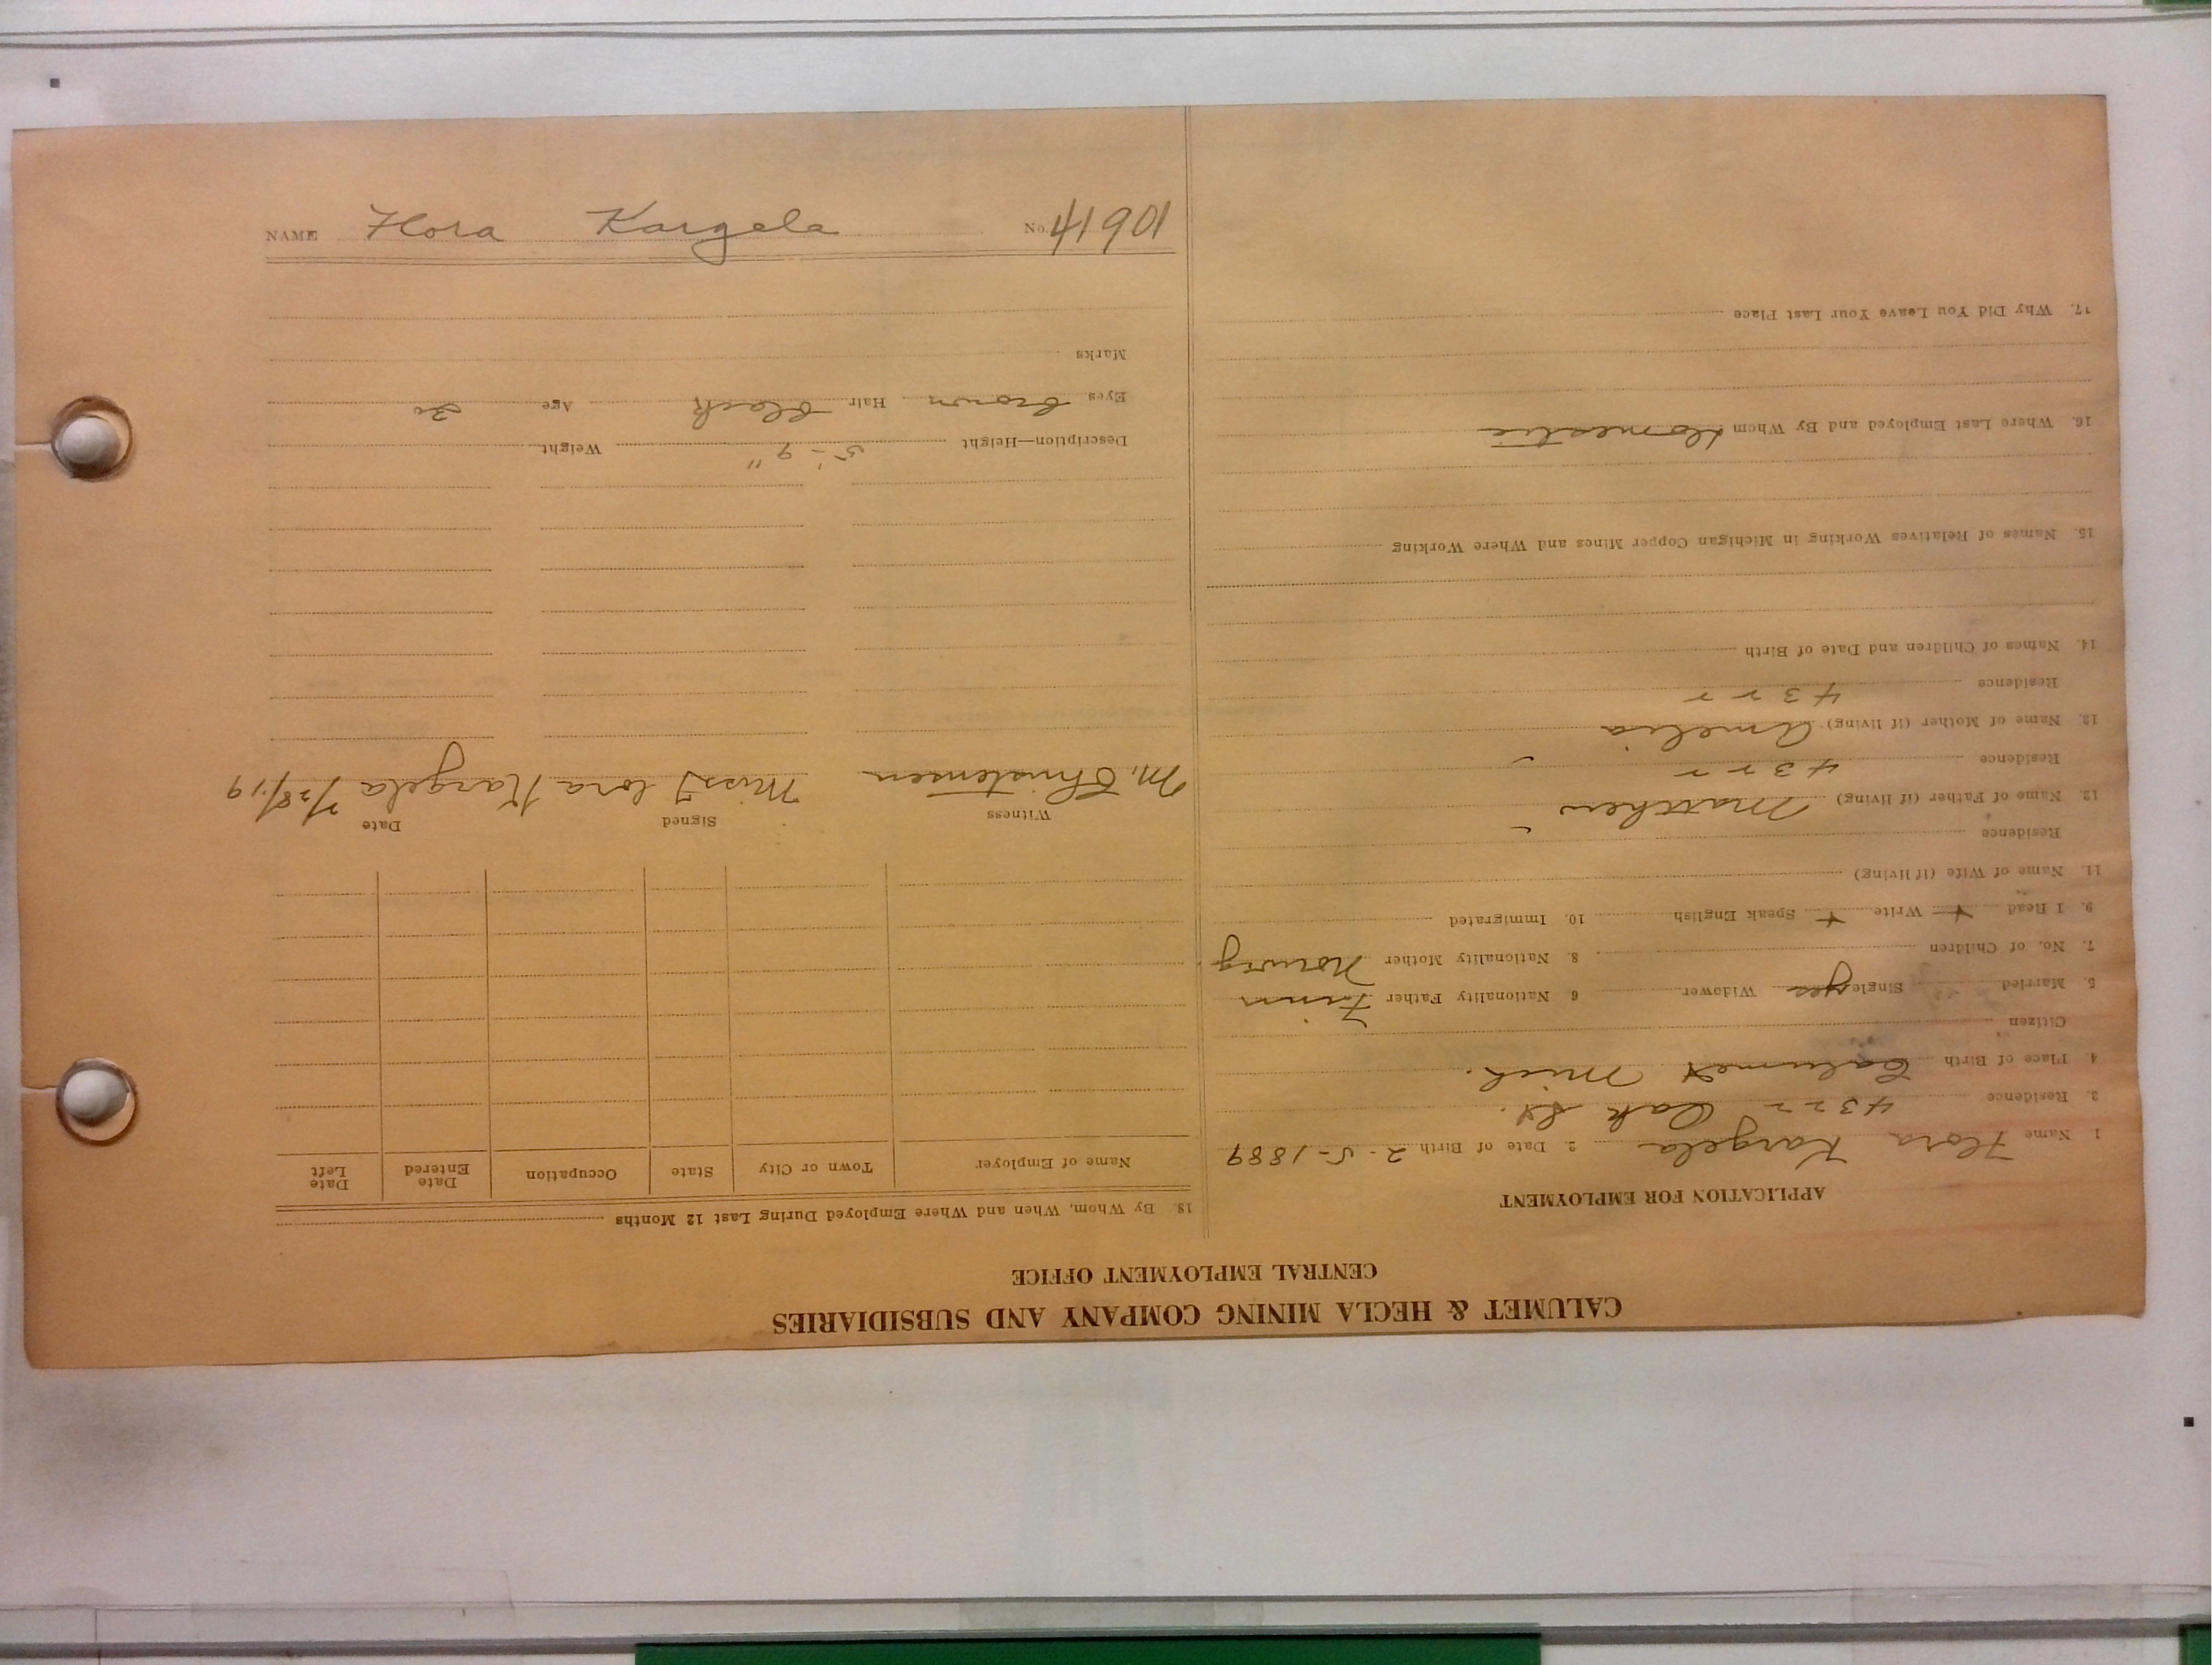 CALUMET & HECLA MINING COMPANY AND SUBSIDIARIES
CENTRAL EMPLOYMENT OFFICE
APPLICATION FOR EMPLOYMENT
1 Name Flora Kargela 2. Date of Birth 2-5-1889
3. Residence 4322 Oak St.
4. Place of Birth Calumet Mich.
Citizen
5. Married Single yes Widower 6 Nationality Father Finn
7. No. of Children 8. Nationality Mother Norweg.
9. I Read Write Speak English 10. Immigrated
11. Name of Wife (if living)
Residence
12. Name of Father (if living) Matthew
Residence 4322
13. Name of Mother (if living) Amelia
Residence 4322
14. Names of Children and Date of Birth
15. Names of Relatives Working in Michigan Copper Mines and Where Working
16. Where Last Employed and By Whom Domestic
17. Why Did You Leave Your Last Place
18. By Whom, When and Where Employed During Last 12 Months
Name of Employer Town or City State Occupation Date Entered Date Left
Witness Signed Date
M. Christensen Miss Flora Kargela 7/28/19
Description—Height 5'-9" Weight
Eyes brown Hair black Age 30
Marks
NAME Flora Kargela No. 41901